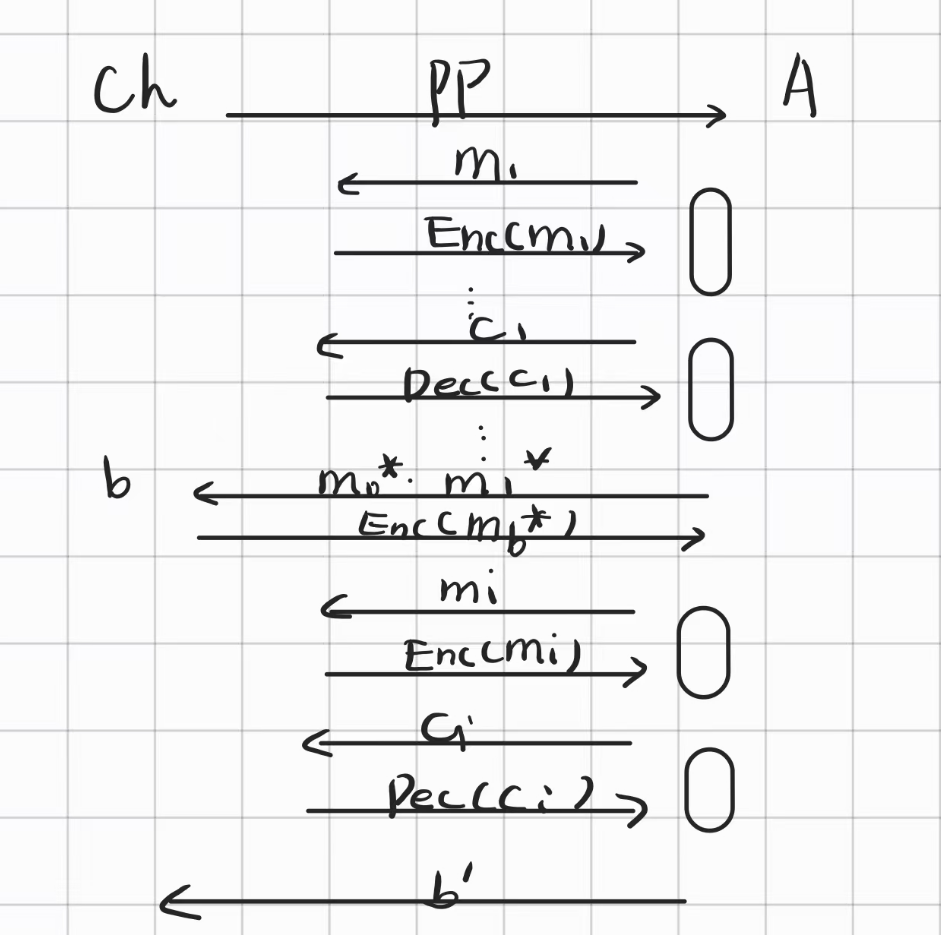 Ch PP A
m₁
Enc(m₁)
⋮
c₁
Dec(c₁)
⋮
b m₀*. m₁*
Enc(m_b*)
mi
Enc(mi)
Ci
Dec(Ci)
b'